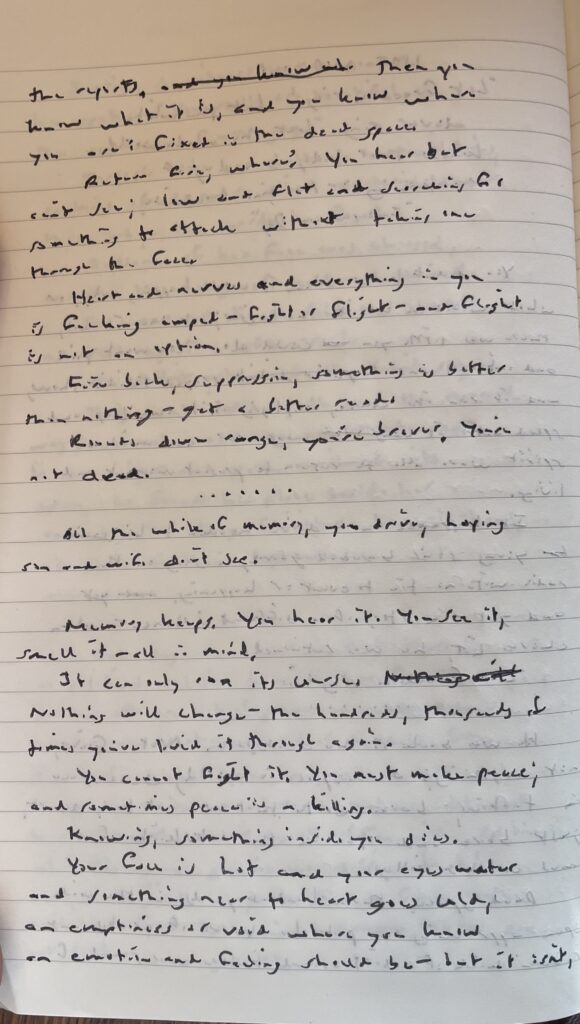 the reports, and you know wh. Then you
know what it is, and you know where
you are: fixed in the dead space.
Return fire, where? You hear but
can't see; low and flat and searching for
something to attack without taking one
through the face.
Heart and nerves and everything in you
is fucking amped - fight or flight - and flight
is not an option.
Fire back, suppression, something is better
than nothing - get a better read.
Rounds down range, you're braver. You're
not dead.
.......
All the while of memory, you drive, hoping
son and wife don't see.
Memory keeps. You hear it. You see it,
smell it - all in mind.
It can only run its course. Nothing will
Nothing will change - the hundreds, thousands of
times you've lived it through again.
You cannot fight it. You must make peace;
and sometimes peace is a killing.
Knowing, something inside you dies.
Your face is hot and your eyes water
and something near to heart goes cold,
an emptiness or void where you know
an emotion and feeling should be - but it isn't,